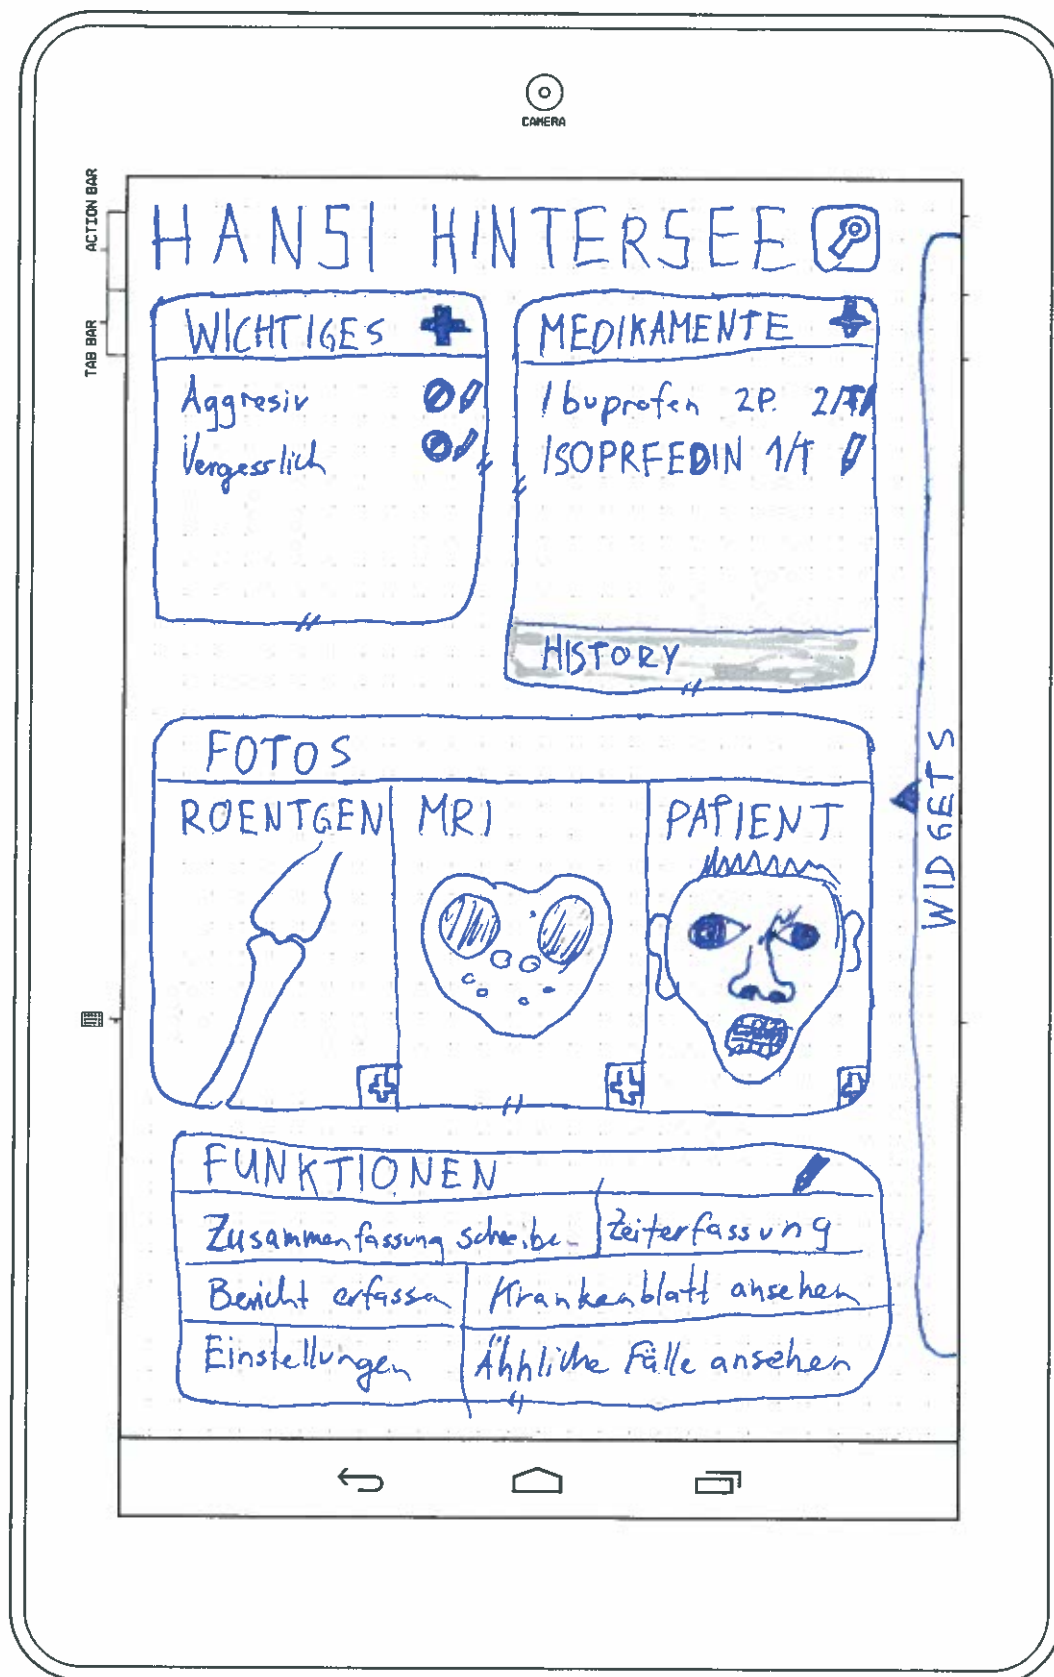 CAMERA
ACTION BAR
TAB BAR
HANSI HINTERSEE
WICHTIGES
Aggresiv
Vergesslich
MEDIKAMENTE
Ibuprofen 2P. 2/T
ISOPRFEDIN 1/T
HISTORY
WIDGETS
FOTOS
ROENTGEN
MRI
PATIENT
FUNKTIONEN
Zusammenfassung schreibe
Zeiterfassung
Bericht erfassen
Krankenblatt ansehen
Einstellungen
Ähnliche Fälle ansehen